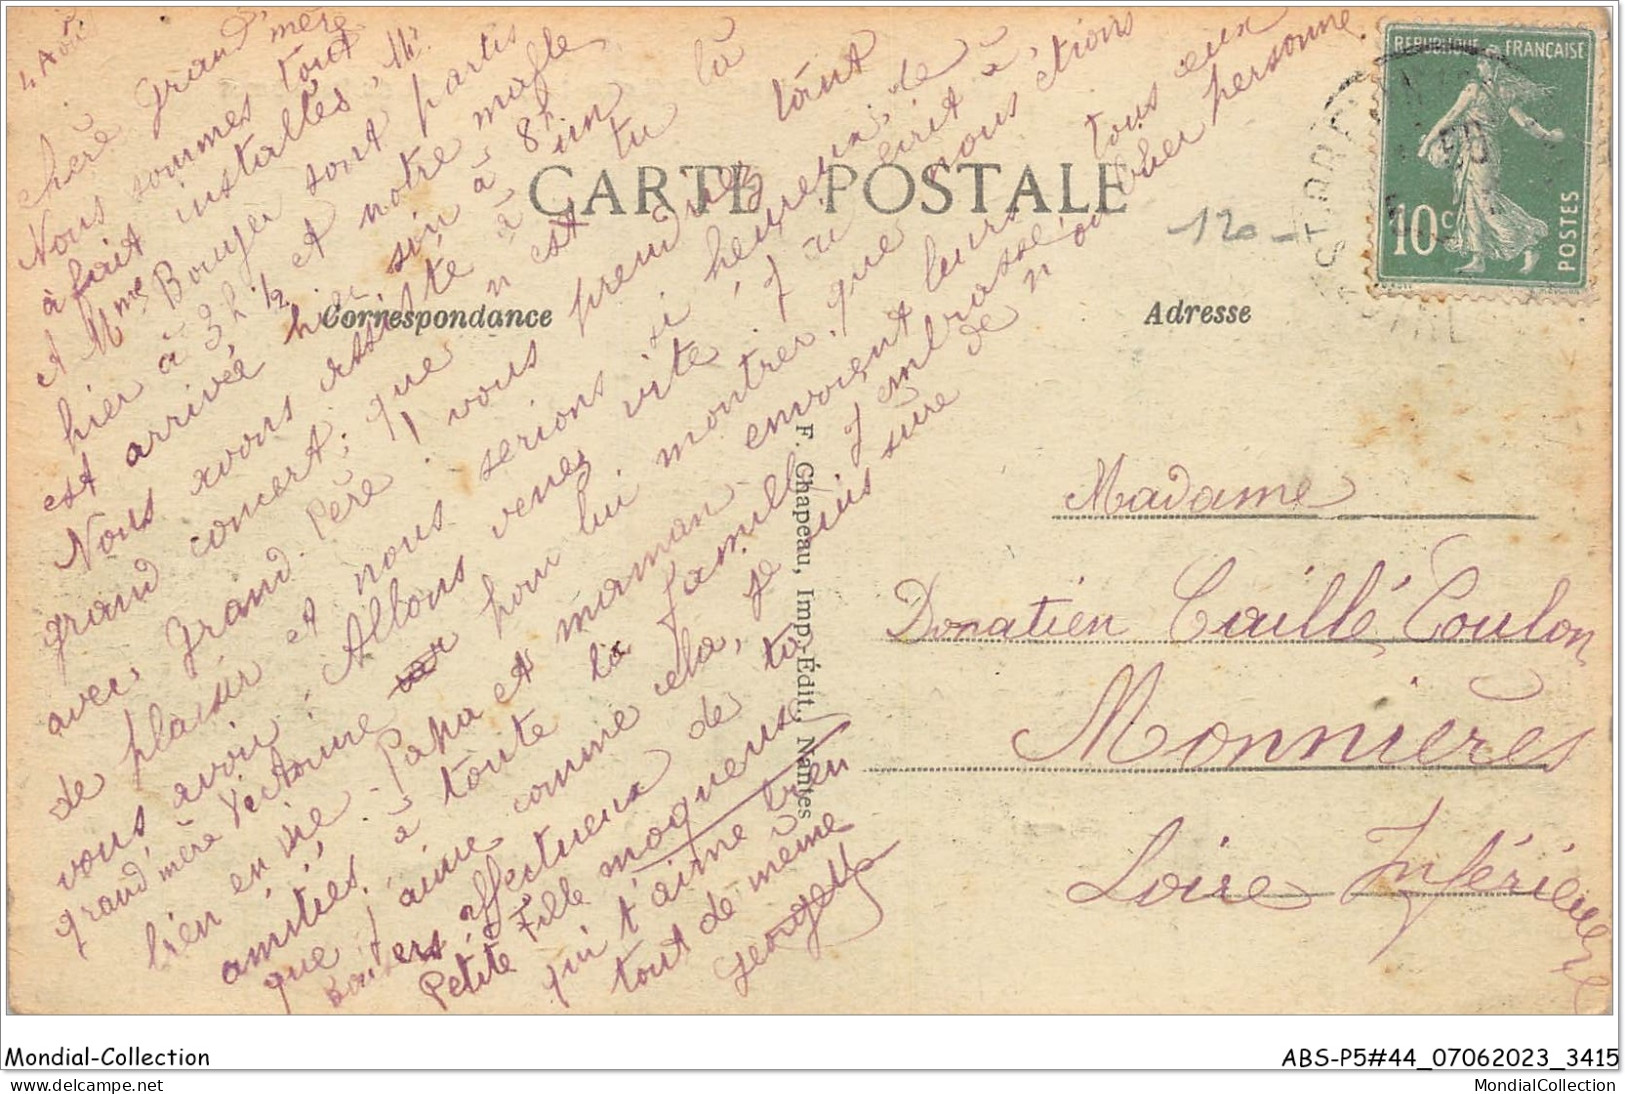 4 Août
Chère Grand'mère
Nous sommes tout
à fait installés, Mr
et Mme Bouyer sont partis
hier à 3h 1/2 et notre malle
est arrivée hier soir à 8h
Nous avons assisté à un
grand concert; que n est tu là
avec Grand-Père! vous prendriez tant
de plaisir et nous serions si heureux, de
vous avoir. Allons venez vite, j ai écrit à
grand'mère Victorine pour lui montrer que nous étions
bien en vie - Papa et maman envoient leurs
amitiés à toute la famille j embrasse tous ceux
que j'aime comme cela, je suis sûre de n oublier personne.
Baisers affectueux de ta
Petite Fille moqueuse
qui t'aime bien
tout de même
Georgette
CARTE POSTALE
Correspondance
Adresse
120 -
REPUBLIQUE FRANÇAISE
10c
POSTES
F. Chapeau, Imp.-Édit., Nantes
Madame
Donatien Caillé Coulon
Monnières
Loire Inférieure
Mondial-Collection
ABS-P5#44_07062023_3415
MondialCollection